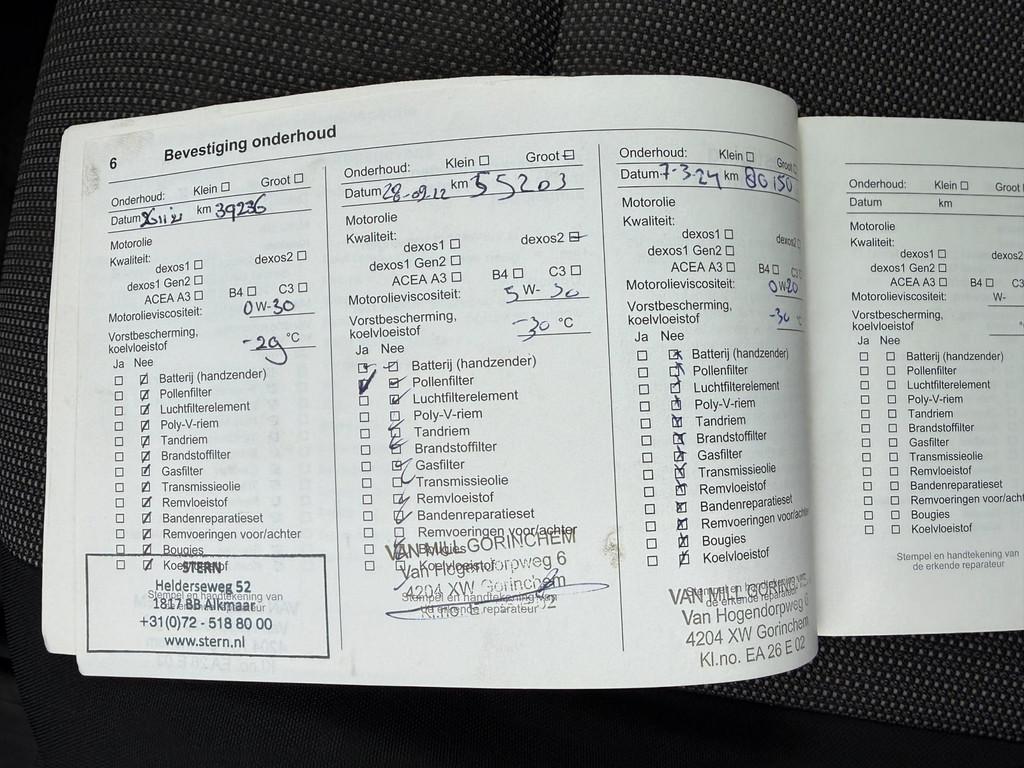 6 Bevestiging onderhoud
Onderhoud: Klein Groot
Datum km 39236
Motorolie
Kwaliteit:
dexos1 dexos2
dexos1 Gen2
ACEA A3 B4 C3
Motorolieviscositeit: 0W-30
Vorstbescherming,
koelvloeistof -29 °C
Ja Nee
Batterij (handzender)
Pollenfilter
Luchtfilterelement
Poly-V-riem
Tandriem
Brandstoffilter
Gasfilter
Transmissieolie
Remvloeistof
Bandenreparatieset
Remvoeringen voor/achter
Bougies
Koelvloeistof
STERN
Helderseweg 52
Stempel en handtekening van
1817 BB Alkmaar
de erkende reparateur
+31(0)72 - 518 80 00
www.stern.nl
Onderhoud: Klein Groot
Datum 28-09-22 km 55203
Motorolie
Kwaliteit:
dexos1 dexos2
dexos1 Gen2
ACEA A3 B4 C3
Motorolieviscositeit: 5W-30
Vorstbescherming,
koelvloeistof -30 °C
Ja Nee
Batterij (handzender)
Pollenfilter
Luchtfilterelement
Poly-V-riem
Tandriem
Brandstoffilter
Gasfilter
Transmissieolie
Remvloeistof
Bandenreparatieset
Remvoeringen voor/achter
Bougies
Koelvloeistof
VAN MILL GORINCHEM
Van Hogendorpweg 6
4204 XW Gorinchem
Stempel en handtekening van
de erkende reparateur
Kl.no. E 02
Onderhoud: Klein Groot
Datum 7-3-24 km 80150
Motorolie
Kwaliteit:
dexos1 dexos2
dexos1 Gen2
ACEA A3 B4 C3
Motorolieviscositeit: 0W20
Vorstbescherming,
koelvloeistof -30 °C
Ja Nee
Batterij (handzender)
Pollenfilter
Luchtfilterelement
Poly-V-riem
Tandriem
Brandstoffilter
Gasfilter
Transmissieolie
Remvloeistof
Bandenreparatieset
Remvoeringen voor/achter
Bougies
Koelvloeistof
Stempel en handtekening van
VAN MILL GORINCHEM
de erkende reparateur
Van Hogendorpweg 6
4204 XW Gorinchem
Kl.no. EA 26 E 02
Onderhoud: Klein Groot
Datum km
Motorolie
Kwaliteit:
dexos1 dexos2
dexos1 Gen2
ACEA A3 B4 C3
Motorolieviscositeit: W-
Vorstbescherming,
koelvloeistof
Ja Nee
Batterij (handzender)
Pollenfilter
Luchtfilterelement
Poly-V-riem
Tandriem
Brandstoffilter
Gasfilter
Transmissieolie
Remvloeistof
Bandenreparatieset
Remvoeringen voor/acht
Bougies
Koelvloeistof
Stempel en handtekening van
de erkende reparateur